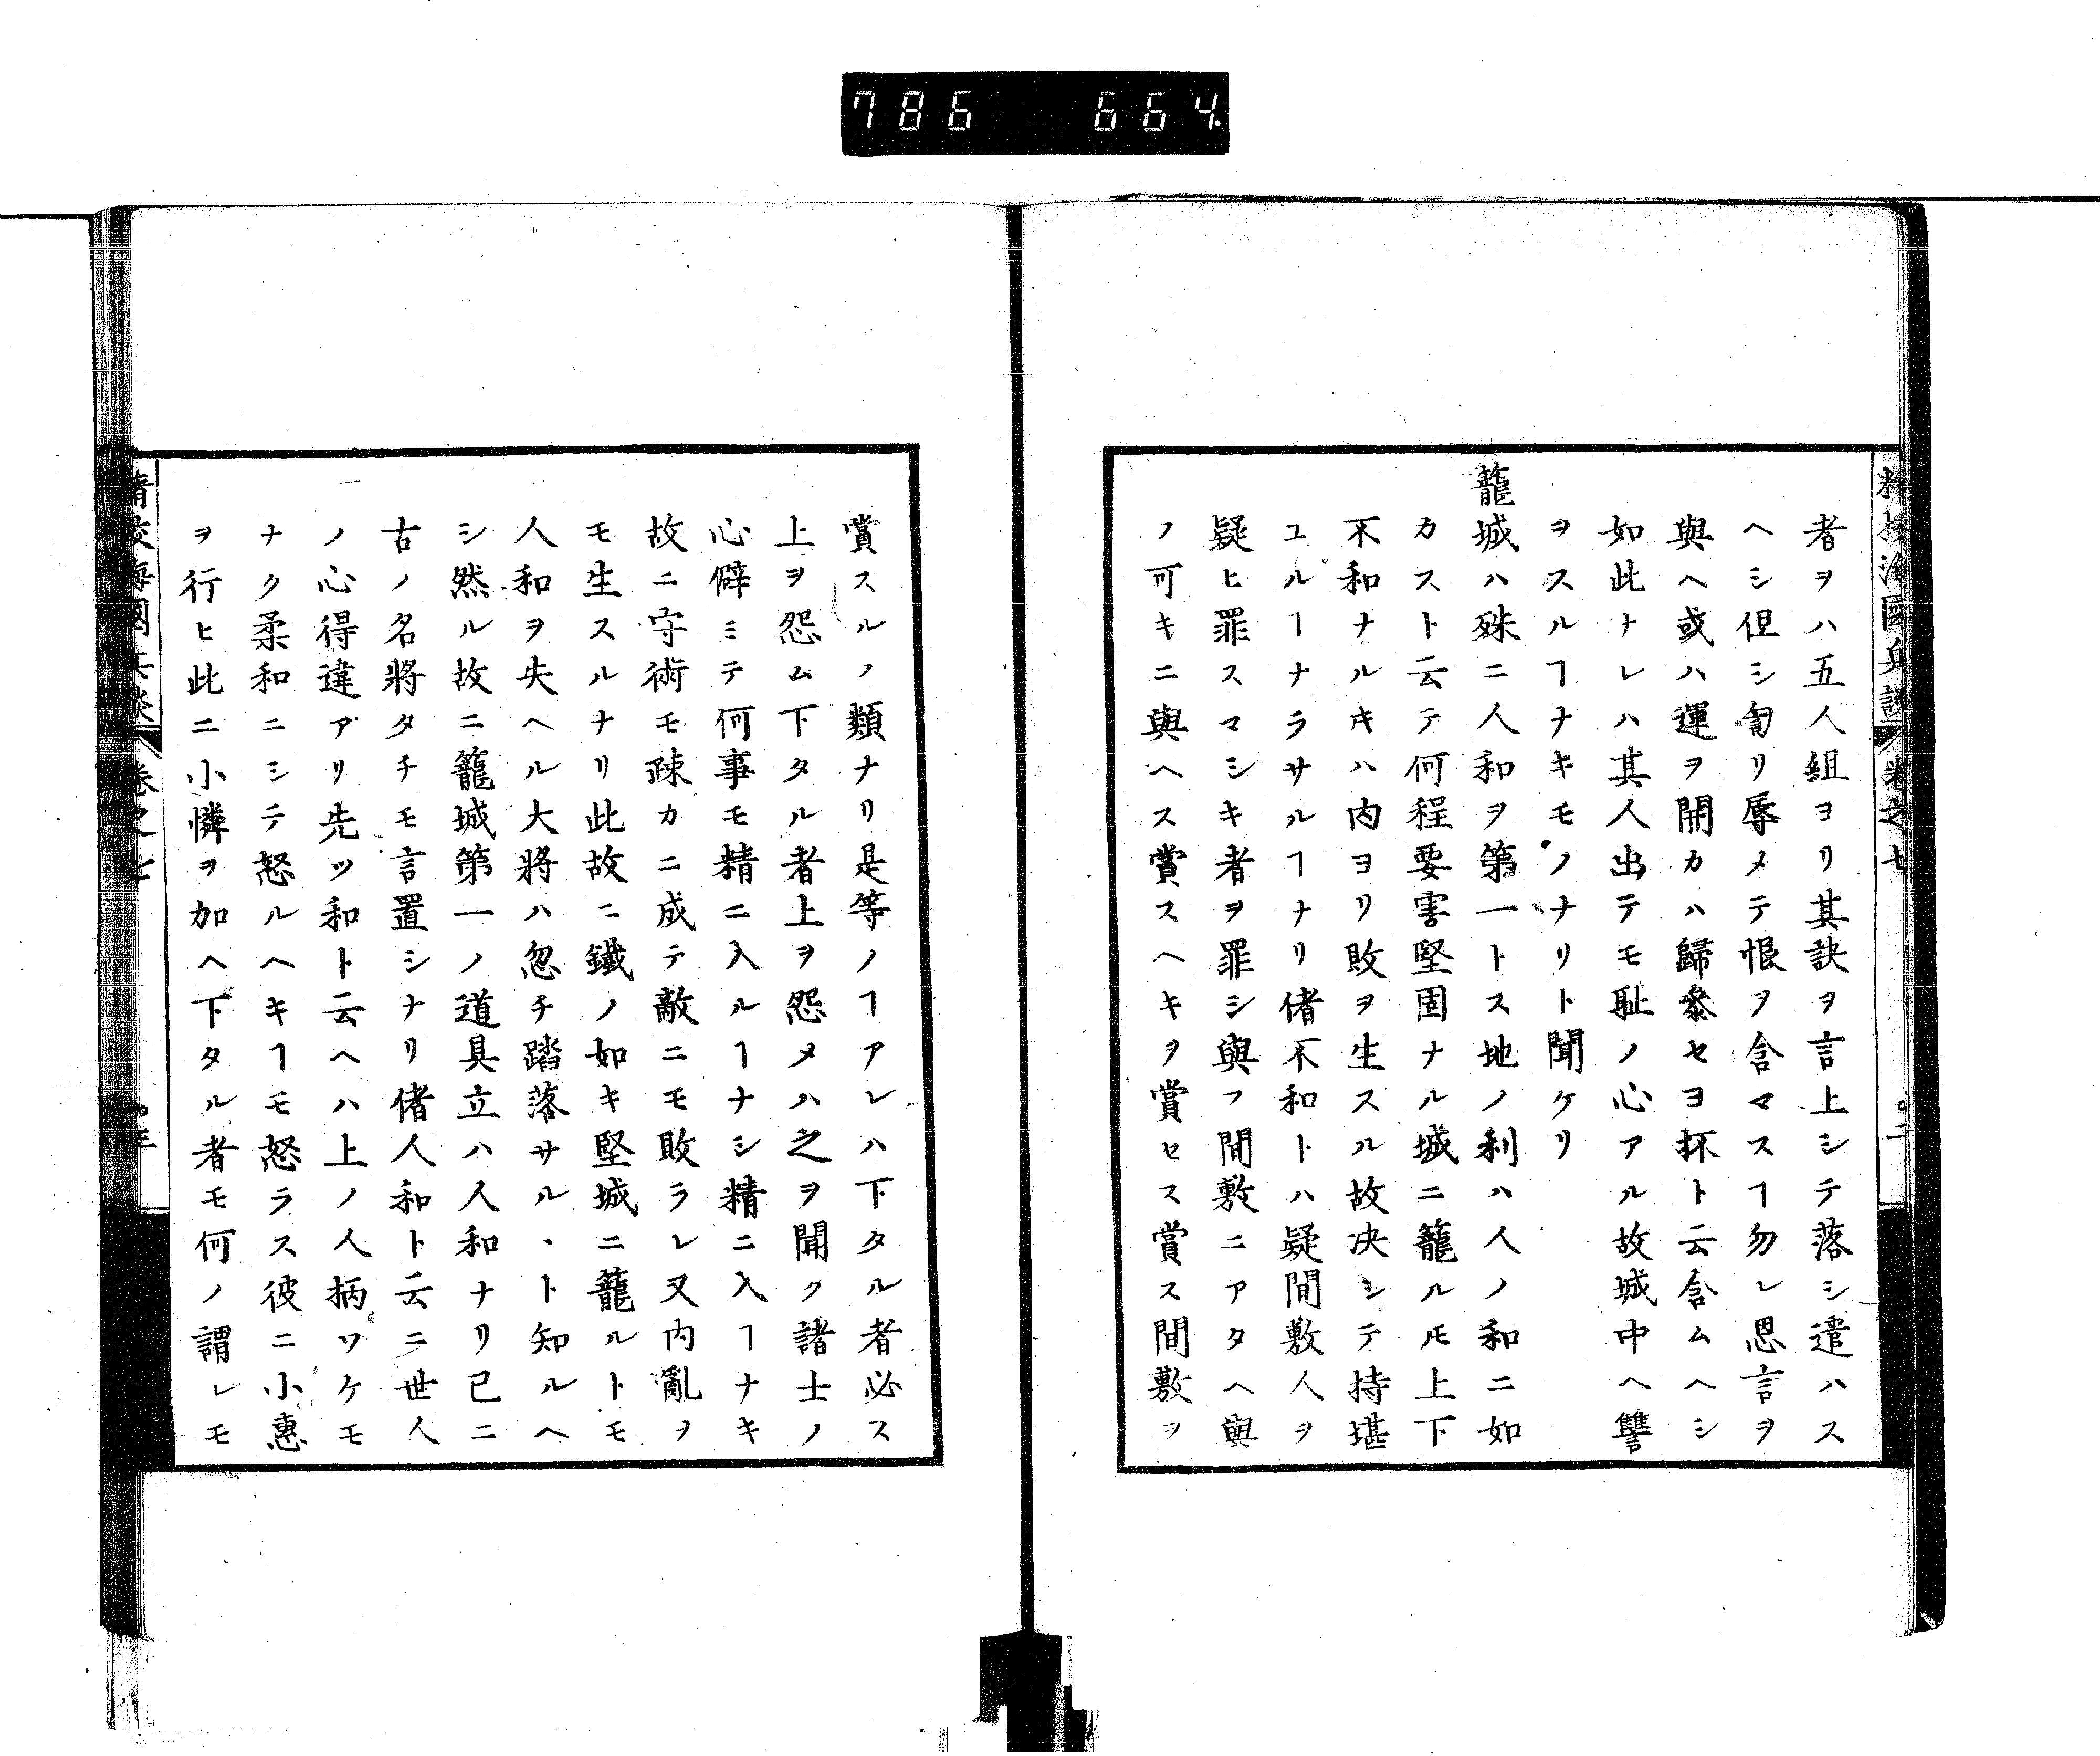 786 664
精校海國兵談 卷之七
者ヲハ五人組ヨリ其訣ヲ言上シテ落シ遣ハス
ヘシ但シ訇リ辱メテ恨ヲ含マスヿ勿レ恩言ヲ
與ヘ或ハ運ヲ開カハ歸參セヨ抔ト云含ムヘシ
如此ナレハ其人出テモ耻ノ心アル故城中ヘ讐
ヲスルヿナキモノナリト聞ケリ
籠城ハ殊ニ人和ヲ第一トス地ノ利ハ人ノ和ニ如
カスト云テ何程要害堅固ナル城ニ籠ルモ上下
不和ナルキハ内ヨリ敗ヲ生スル故决シテ持堪
ユルヿナラサルヿナリ偖不和トハ疑間敷人ヲ
疑ヒ罪スマシキ者ヲ罪シ與フ間敷ニアタヘ與
ノ可キニ與ヘス賞スヘキヲ賞セス賞ス間敷ヲ
賞スルノ類ナリ是等ノヿアレハ下タル者必ス
上ヲ怨ム下タル者上ヲ怨メハ之ヲ聞ク諸士ノ
心僻ミテ何事モ精ニ入ルヿナシ精ニ入ヿナキ
故ニ守術モ疎カニ成テ敵ニモ敗ラレ又内亂ヲ
モ生スルナリ此故ニ鐵ノ如キ堅城ニ籠ルトモ
人和ヲ失ヘル大將ハ忽チ踏落サルヽト知ルヘ
シ然ル故ニ籠城第一ノ道具立ハ人和ナリ已ニ
古ノ名將タチモ言置シナリ偖人和ト云ニ世人
ノ心得違アリ先ツ和ト云ヘハ上ノ人柄ツケモ
ナク柔和ニシテ怒ルヘキヿモ怒ラス彼ニ小惠
ヲ行ヒ此ニ小憐ヲ加ヘ下タル者モ何ノ謂レモ
精校海國兵談 卷之七